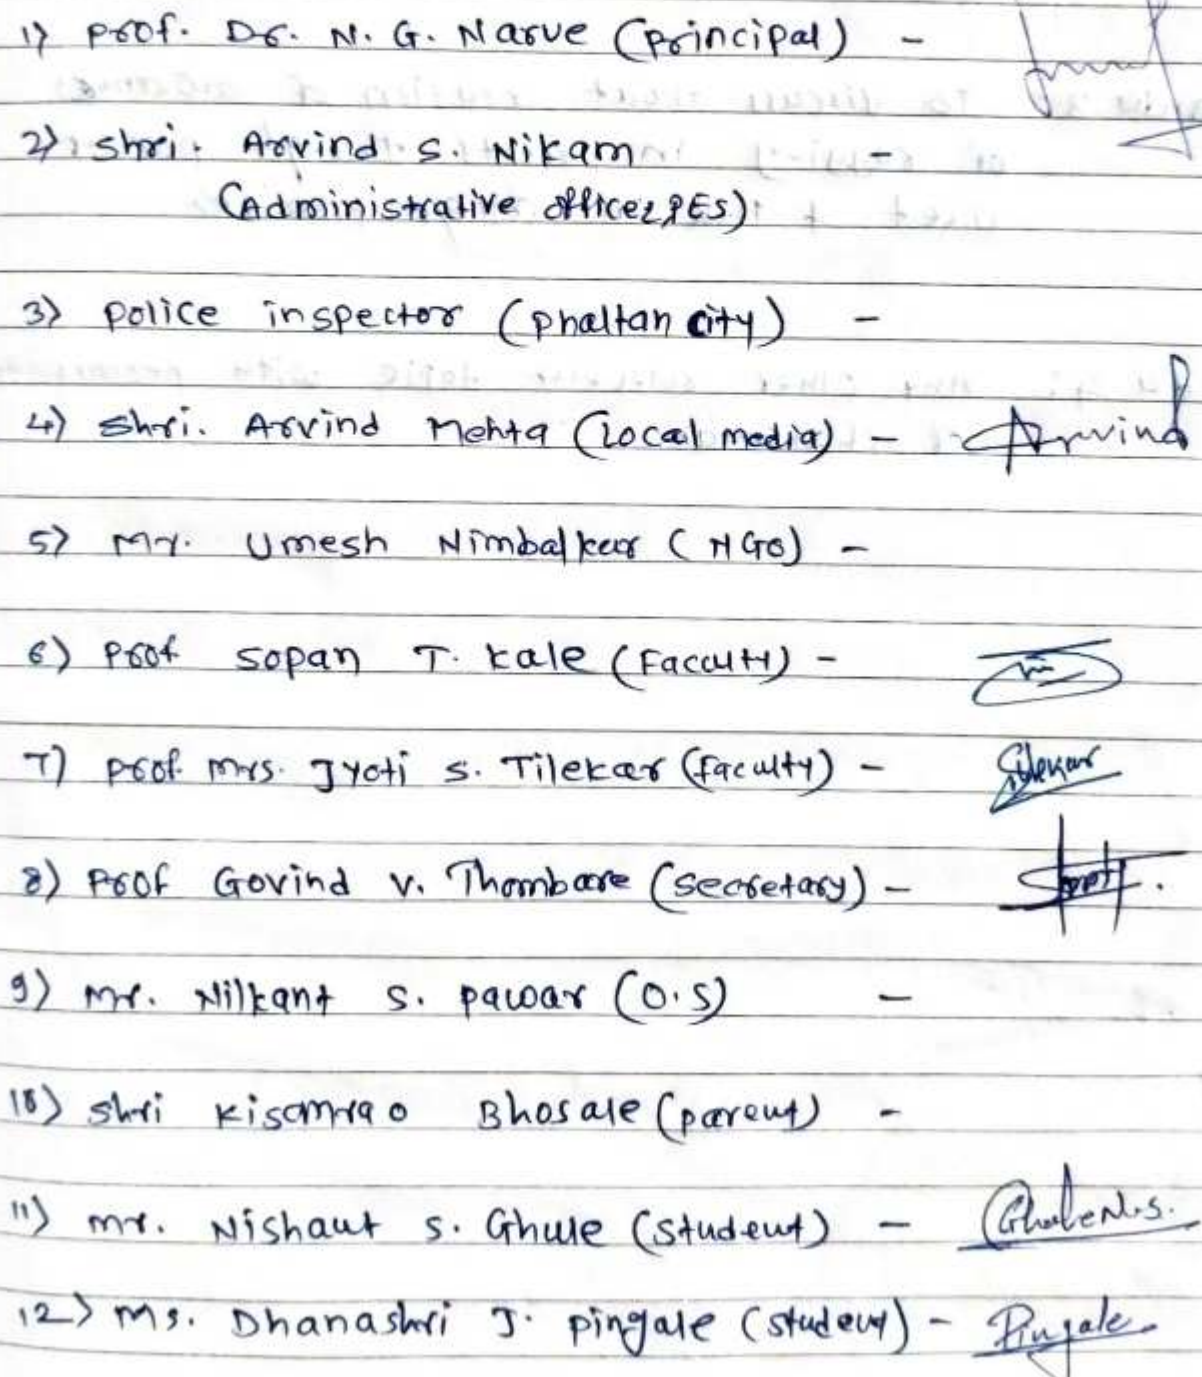 1) Prof. Dr. N. G. Narve (Principal) -
2) Shri. Arvind S. Nikam -
(Administrative officer PES)
3) Police inspector (Phaltan city) -
4) Shri. Arvind Mehta (Local media) - Arvind
5) Mr. Umesh Nimbalkar (NGO) -
6) Prof Sopan T. Kale (Faculty) -
7) Prof. Mrs. Jyoti S. Tilekar (faculty) - Tilekar
8) Prof Govind V. Thombare (Secretary) -
9) Mr. Nilkant S. Pawar (O.S) -
10) Shri Kisanrao Bhosale (parent) -
11) Mr. Nishant S. Ghule (Student) - Ghule N.S.
12) Ms. Dhanashri J. Pingale (student) - Pingale